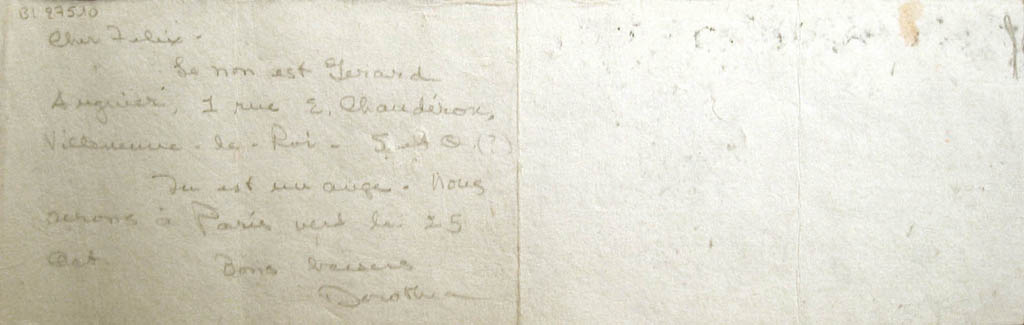 BL 27510
Cher Felix -
Le non est Gerard
Auguier, 1 rue E. Chaudéron,
Villeneuve - le - Roi - S et O (?)
Tu est un ange. Nous
serons à Paris vers le 25
Oct. Bons baisers
Dorothea